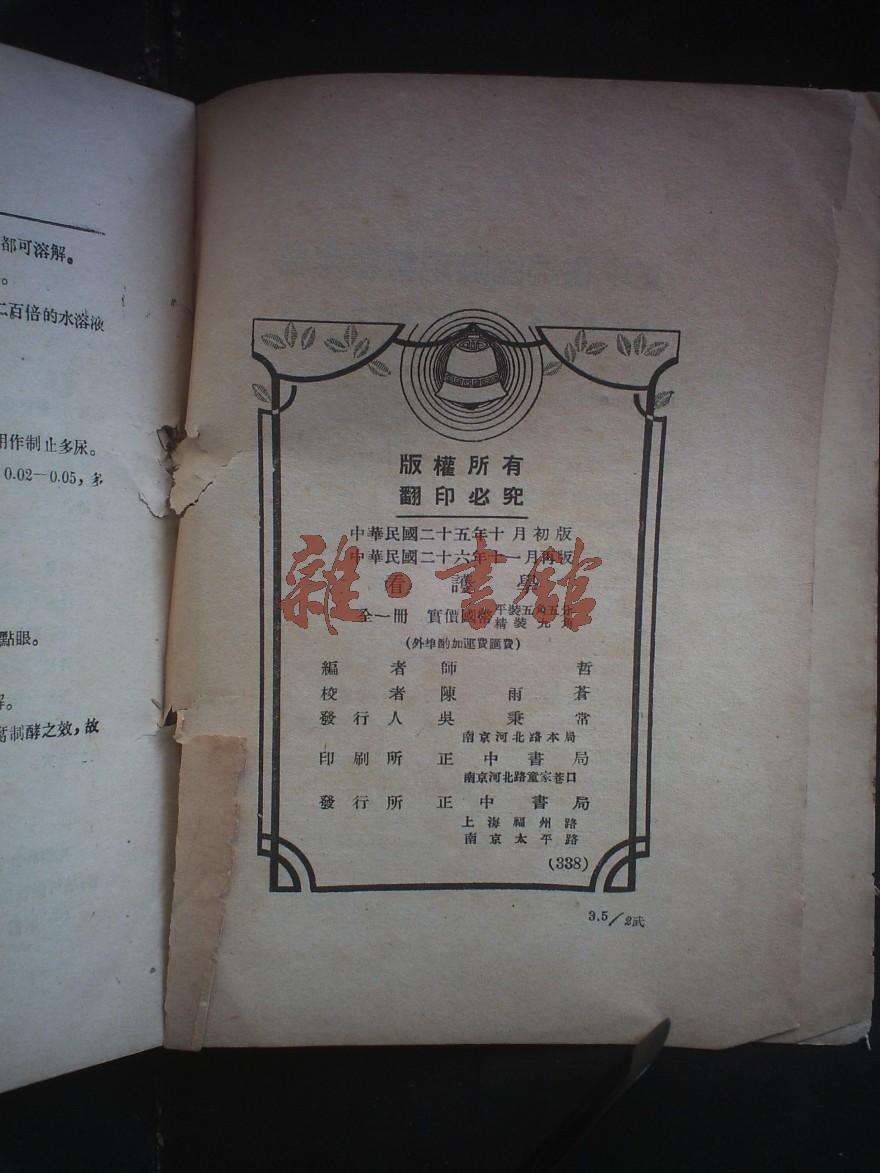 都可溶解。
。
二百倍的水溶液
用作制止多尿。
0.02—0.05，多
點眼。
解。
制酵之效，故
版權所有
翻印必究
中華民國二十五年十月初版
中華民國二十六年十一月再版
看護學
全一冊 實價國幣 平裝五角五分 精裝九角
(外埠酌加運費匯費)
編者 師哲
校者 陳雨蒼
發行人 吳秉常
南京河北路本局
印刷所 正中書局
南京河北路童家巷口
發行所 正中書局
上海福州路
南京太平路
(338)
3.5/2武
雜·書館